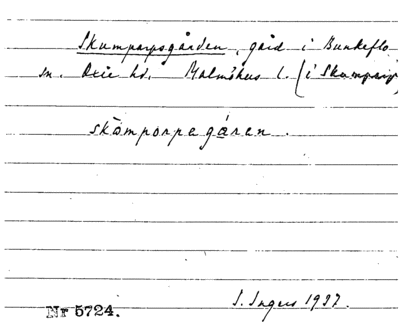 Skumparpsgården, gård i Bunkeflo
sn. Oxie hd. Malmöhus l. (i Skumparp)
skòmporpegáren.
Nr 5724.
I. Ingers 1937.